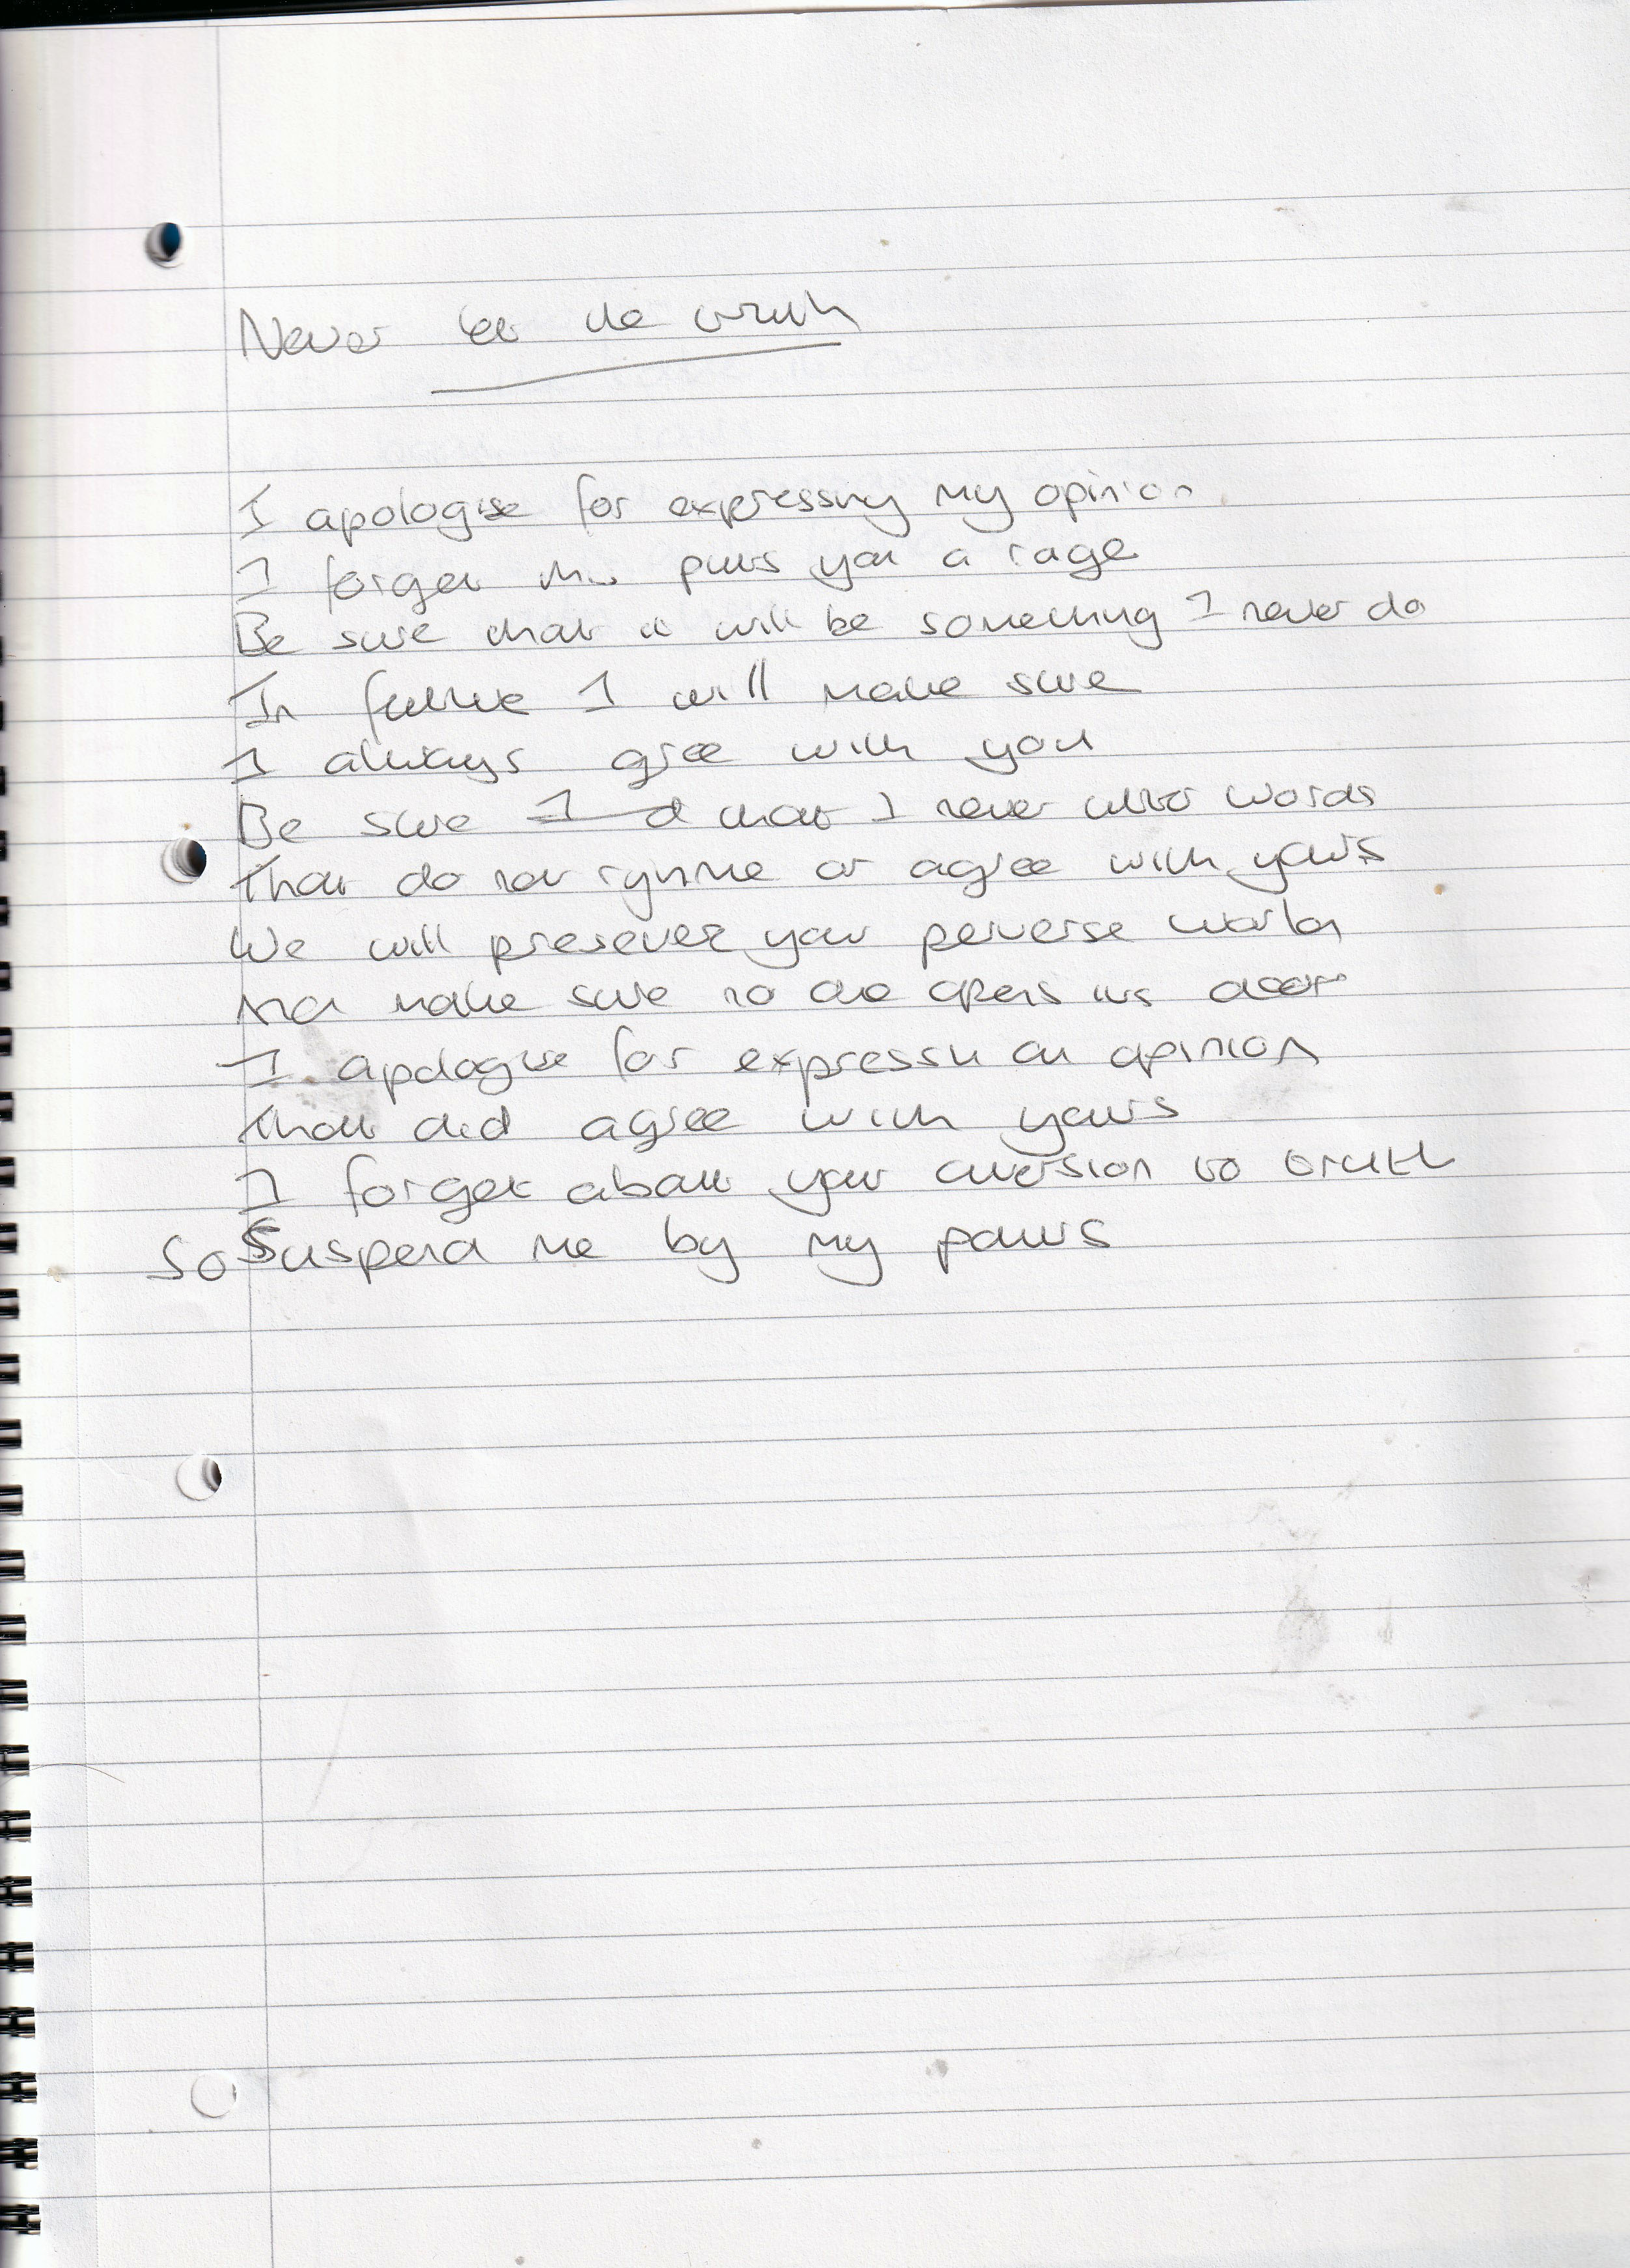 Never let the truth
I apologise for expressing my opinion
I forget this puts you a rage
Be sure that it will be something I never do
In future I will make sure
I always gree with you
Be sure that I never utter words
That do not ryhme or agree with yours
We will presever your perverse world
And make sure no one opens its door
I apologise for expressin an opinion
That did agree with yours
I forget about your aversion to truth
So Suspend me by my paws